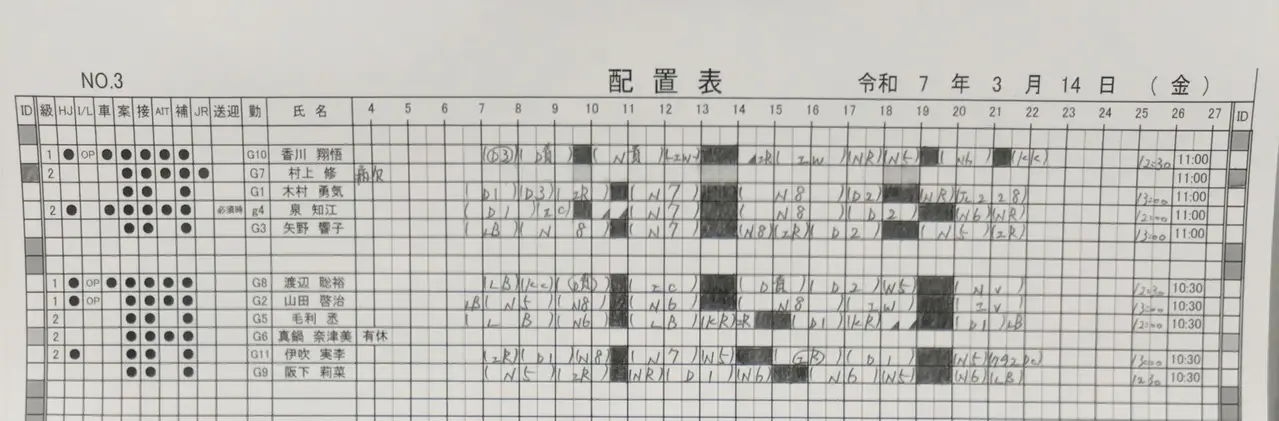 NO.3 配置表 令和 7 年 3 月 14 日 (金)
ID 級 HJ I/L 車 案 接 AIT 補 JR 送迎 勤 氏 名 4 5 6 7 8 9 10 11 12 13 14 15 16 17 18 19 20 21 22 23 24 25 26 27 ID
1 ● OP ● ● ● ● ● G10 香川 翔悟 (D3) (D責) (N責) (IW) (NR) (N5) (N6) (KK) 1230 11:00
2 ● ● ● ● ● G7 村上 修 病欠 11:00
● ● ● G1 木村 勇気 (D1) (D3) (IR) (N7) (N8) (D2) (NR) 1300 11:00
2 ● ● ● ● ● ● 必須時 g4 泉 知江 (D1) (IC) (N7) (N8) (D2) (N6) (NR) 1200 11:00
● ● ● G3 矢野 響子 (LB) (N8) (N7) (N8) (IR) (D2) (N5) (IR) 1300 11:00
1 ● OP ● ● ● ● ● G8 渡辺 聡裕 (LB) (KC) (D責) (IC) (D責) (D2) (N5) (NV) 1230 10:30
1 ● OP ● ● ● ● G2 山田 啓治 LB (N5) (N8) (N6) (N8) (IW) (IV) 1300 10:30
2 ● ● ● G5 毛利 丞 (LB) (N6) (LB) (KR) (D1) (KR) (D1) LB 1200 10:30
2 ● ● ● ● G6 真鍋 奈津美 有休
2 ● ● ● ● G11 伊吹 実李 (IR) (D1) (N8) (N7) (N5) (D1) (N5) 1300 10:30
● ● ● G9 阪下 莉菜 (N5) (IR) (NR) (D1) (N6) (N6) (N5) (N6) (LB) 1230 10:30